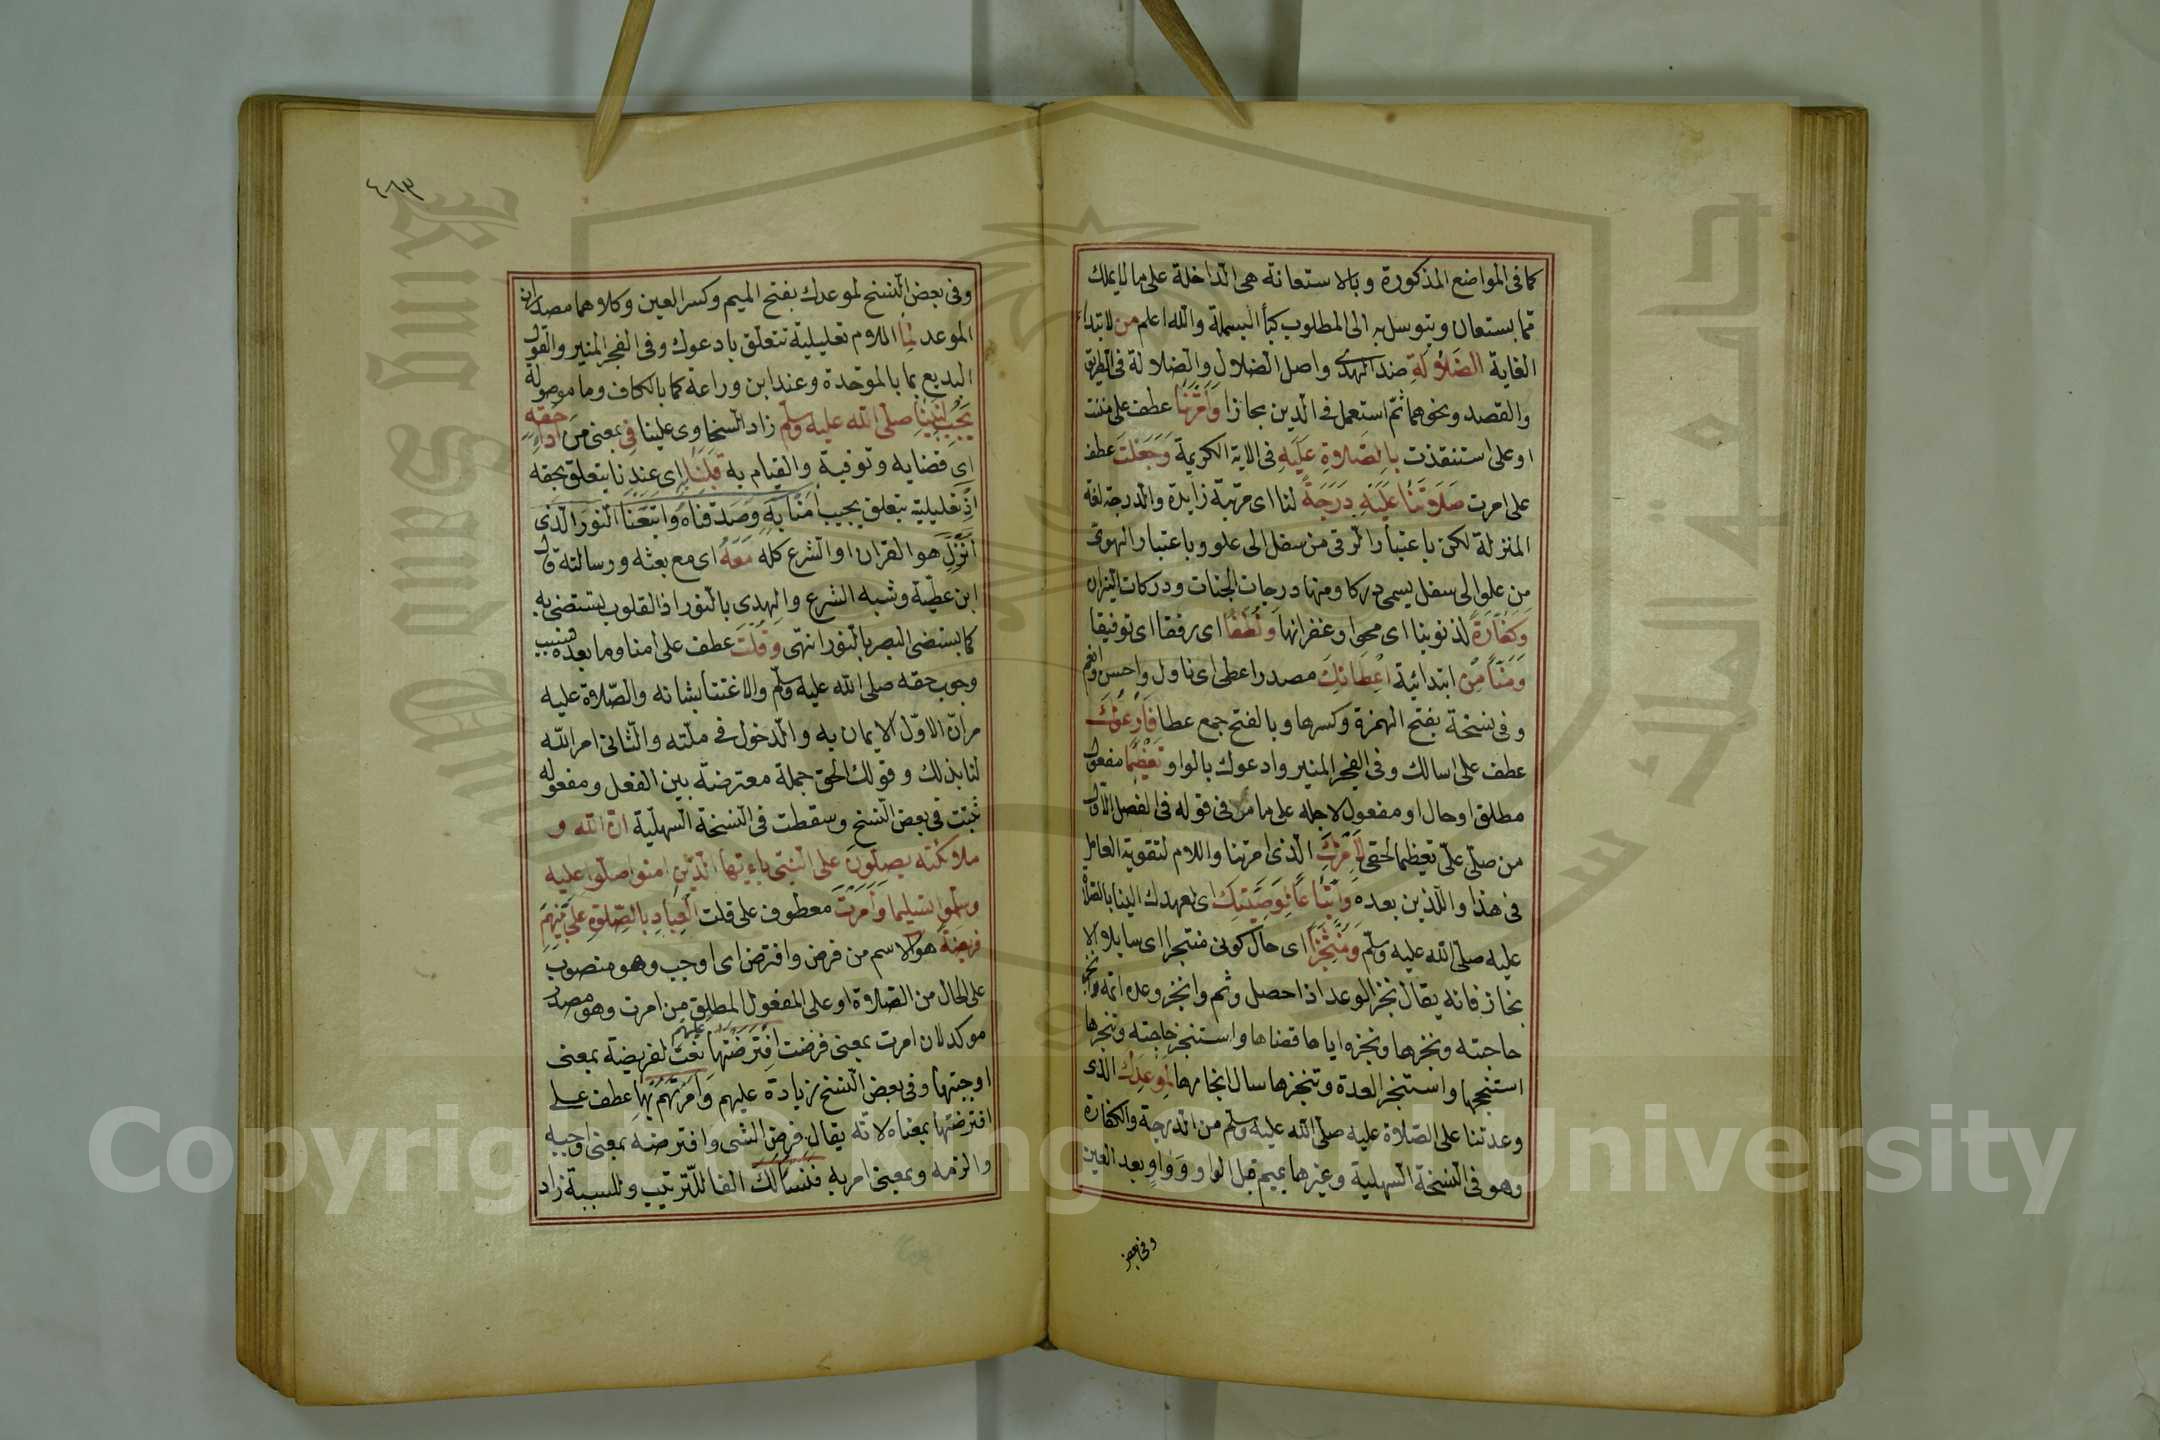 كما فى المواضع المذكورة وبالاستعانة هى الداخلة على ما لا يملك
مما يستعان ويتوسل به الى المطلوب كبأ البسملة والله اعلم من لابتداء
الغاية الضلالة ضد الهدى واصل الضلال والضلالة فى الطريق
والقصد ونحوهما ثم استعمل فى الدين مجازا وامرتنا عطف على مننت
او على استنقذت بالصلاة عليه فى الاية الكريمة وجعلت عطف
على امرت صلاتنا عليه درجة لنا اى مرتبة زايدة والدرجة لغة
المنزلة لكن باعتبار الرقى من سفل الى علو وباعتبار الهوى
من علو الى سفل يسمى دركا ومنها درجات الجنات ودركات النيران
وكفارة لذنوبنا اى محوا وغفرانها ولطفا اى رفقا اى توفيقا
ومنا من ابتدائية اعطائك مصدر اعطى اى ناول واحسن وانعم
وفى نسخة بفتح الهمزة وكسرها وبالفتح جمع عطا فادعوك
عطف على اسالك وفى الفجر المنير وادعوك بالواو تعظيما مفعول
مطلق او حال او مفعول لاجله على ما مر فى قوله فى الفصل الاول
من صلى على تعظيما لحقى لامرك الذى امرتنا واللام لتقوية العامل
فى هذا والذين بعده واتباعا لوصيتك اى لعهدك الينا بالصلاة
عليه صلى الله عليه وسلم ومنتجزا اى حال كونى منتجزا اى سايلا
نجاز فانه يقال نجز الوعد اذا حصل وتم وانجز وعده اتمه
حاجته ونجزها ونجزه اياها قضاها واستنجز حاجته وتنجزها
استنجحها واستنجز العدة وتنجزها سال انجازها لموعدك الذى
وعدتنا على الصلاة عليه صلى الله عليه وسلم من الدرجة والكفارة
وهو فى النسخة السهلية وغيرها بميم قبل الواو وواو بعد العين
وفى بعض
٤٨٣
وفى بعض النسخ لموعدك بفتح الميم وكسر العين وكلاهما مصدران
الموعد لما اللام تعليلية تتعلق بادعوك وفى الفجر المنير والقول
البديع بما بالموحدة وعند ابن وراعة كما بالكاف وما موصولة
يجب لنبينا صلى الله عليه وسلم زاد السخاوى علينا فى بمعنى من اداء حقه
اى قضايه وتوفية والقيام به قبلنا اى عندنا يتعلق بحقه
اذ تعليلية يتعلق بيجيب امنا به وصدقناه واتبعنا النور الذى
انزل هو القران او الشرع كله معه اى مع بعثه ورسالته قال
ابن عطية وشبه الشرع والهدى بالنور اذ القلوب يستضى به
كما يستضى البصر بالنور انتهى وقلت عطف على امنا وما بعده فسبب
وجوب حقه صلى الله عليه وسلم والاغتنا بشانه والصلاة عليه
مران الاول الايمان به والدخول فى ملته والثانى امر الله
لنا بذلك وقولك الحق جملة معترضة بين الفعل ومفعوله
ثبتت فى بعض النسخ وسقطت فى النسخة السهلية ان الله و
ملائكته يصلون على النبى ياءيها الذين امنوا صلوا عليه
وسلموا تسليما وامرت معطوف على قلت العباد بالصلوة على نبيهم
فريضة هو الاسم من فرض وافترض اى اوجب وهو منصوب
على الحال من الصلاة او على المفعول المطلق من امرت وهو مصدر
موكد لان امرت بمعنى فرضت افترضتها عليهم نعت لفريضة بمعنى
اوجبتها وفى بعض النسخ بزيادة عليهم وامرتهم بها عطف على
افترضتها بمعناه لانه يقال فرض الشى وافترضه بمعنى اوجبه
والزمه وبمعنى امر به فنسالك الفا للترتيب وللسببية زاد
جامعة الملك سعود
King Saud University
Copyright © King Saud University